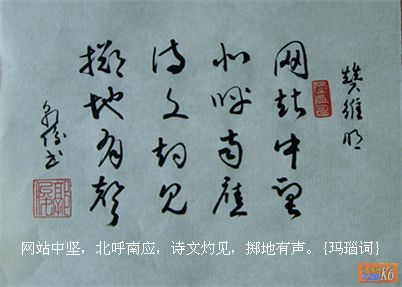 赞维明
网站中坚
北呼南應
诗文灼见
擲地有聲
网站中坚，北呼南应，诗文灼见，掷地有声。{玛瑙词}
K6